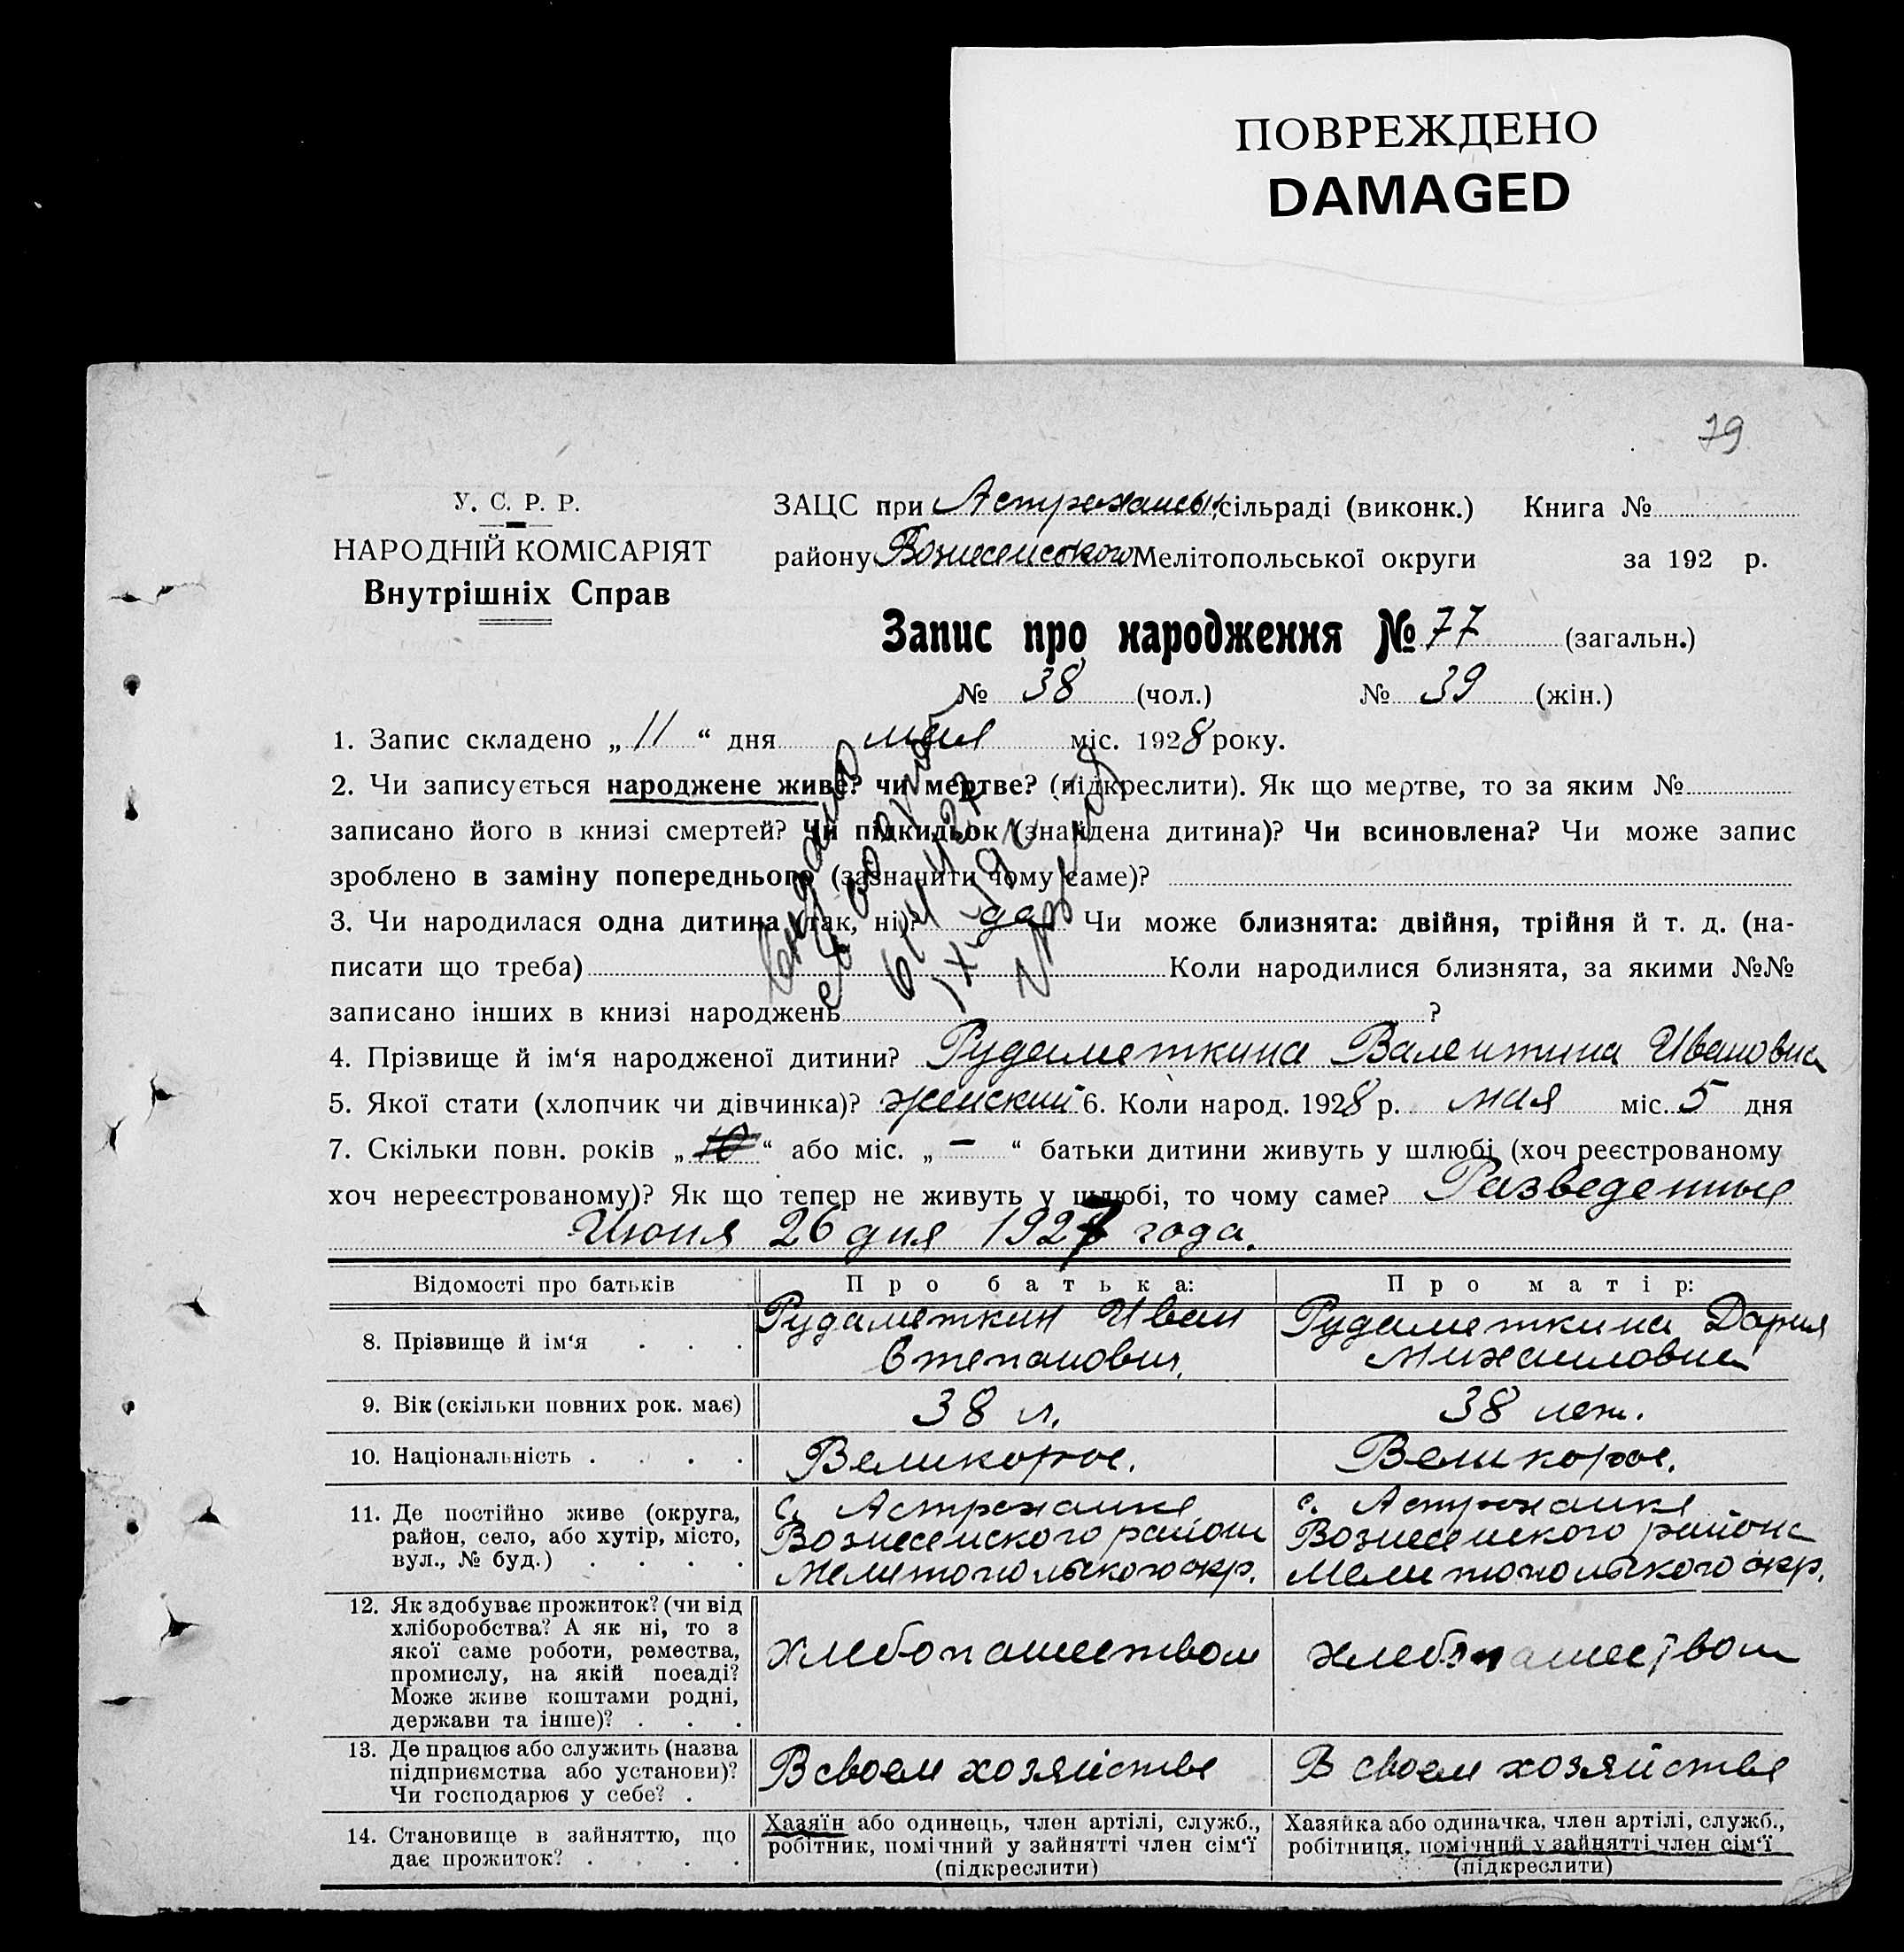 ПОВРЕЖДЕНО
DAMAGED
79
У. С. Р. Р.
НАРОДНІЙ КОМІСАРІЯТ
Внутрішніх Справ
ЗАЦС при Астраханск. сільраді (виконк.) Книга №
району Вознесенского Мелітопольської округи за 192 р.
Запис про народження № 77 (загальн.)
№ 38 (чол.) № 39 (жін.)
1. Запис складено „ 11 “ дня мая міс. 1928 року.
2. Чи записується народжене живе? чи мертве? (підкреслити). Як що мертве, то за яким №
записано його в книзі смертей? Чи підкидьок (знайдена дитина)? Чи всиновлена? Чи може запис
зроблено в заміну попереднього (зазначити чому саме)?
3. Чи народилася одна дитина (так, ні)? да Чи може близнята: двійня, трійня й т. д. (на-
писати що треба) Коли народилися близнята, за якими №№
записано інших в книзі народжень ?
4. Прізвище й ім‘я народженої дитини? Рудаметкина Валентина Ивановна
5. Якої стати (хлопчик чи дівчинка)? женский 6. Коли народ. 1928 р. мая міс. 5 дня
7. Скільки повн. років „ 10 “ або міс. „ — “ батьки дитини живуть у шлюбі (хоч реєстрованому
хоч нереєстрованому)? Як що тепер не живуть у шлюбі, то чому саме? Разведенные
Июня 26 дня 1927 года.
Відомості про батьків Про батька: Про матір:
8. Прізвище й ім‘я . . . Рудаметкин Иван Степанович, Рудаметкина Дария Михаиловна
9. Вік (скільки повних рок. має) 38 л. 38 лет.
10. Національність . . . . Великорос. Великорос.
11. Де постійно живе (округа,
район, село, або хутір, місто,
вул., № буд.) . . . .
с. Астраханка
Вознесенского района
Мелитопольского окр.
с. Астраханка
Вознесенского района
Мелитопольского окр.
12. Як здобуває прожиток? (чи від
хліборобства? А як ні, то з
якої саме роботи, ремества,
промислу, на якій посаді?
Може живе коштами родні,
держави та інше)? . . .
хлебопашеством
хлебопашеством
13. Де працює або служить (назва
підприємства або установи)?
Чи господарює у себе? .
В своем хозяйстве
В своем хозяйстве
14. Становище в зайняттю, що
дає прожиток? . . . .
Хазяїн або одинець, член артілі, служб.,
робітник, помічний у зайнятті член сім‘ї
(підкреслити)
Хазяйка або одиначка, член артілі, служб.,
робітниця, помічний у зайнятті член сім‘ї
(підкреслити)